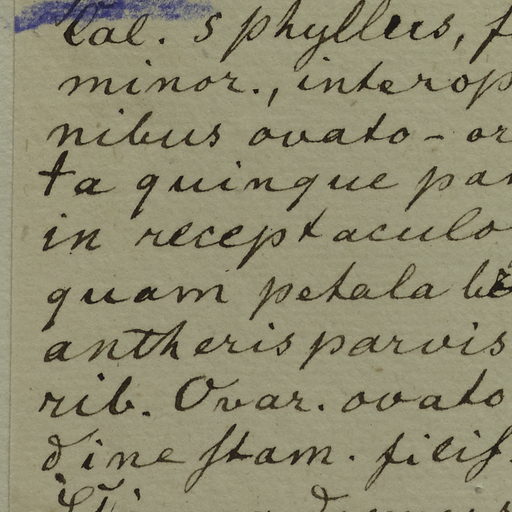 Cal. 5 phyllus, f
minor., interop
nibus ovato - or
ta quinque par
in receptaculo
quam petala
antheris parvis
rib. Ovar. ovato
dine stam. filif.